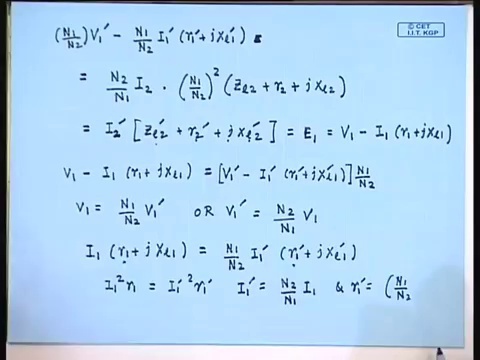 © CET
I.I.T. KGP
(N1/N2) V1′ − N1/N2 I1′ (r1′ + j xl1′)
= N2/N1 I2 · (N1/N2)² (Zl2 + r2 + j xl2)
= I2′ [Zl2′ + r2′ + j xl2′] = E1 = V1 − I1 (r1 + j xl1)
V1 − I1 (r1 + j xl1) = [V1′ − I1′ (r1′ + j xl1′)] N1/N2
V1 = N1/N2 V1′ OR V1′ = N2/N1 V1
I1 (r1 + j xl1) = N1/N2 I1′ (r1′ + j xl1′)
I1² r1 = I1′² r1′ I1′ = N2/N1 I1 & r1′ = (N1/N2